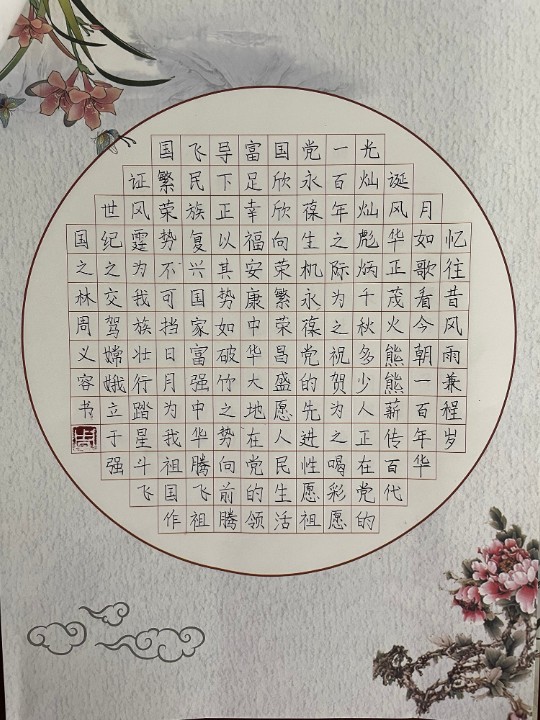 忆往昔风雨兼程岁
月如歌看今朝一百年华
诞风华正茂火熊熊薪传百代
光灿灿彪炳千秋多少人正在党的
一百年之际为之祝贺为之喝彩愿
党永葆生机永葆党的先进性愿祖
国欣欣向荣繁荣昌盛愿人民生活
富足幸福安康中华大地在党的领
导下正以其势如破竹之势向前腾
飞民族复兴国家富强中华腾飞祖
国繁荣势不可挡日月为我祖国作
证风霆为我族壮行踏星斗飞
世纪之交驾嫦娥立于强
国之林周义容书